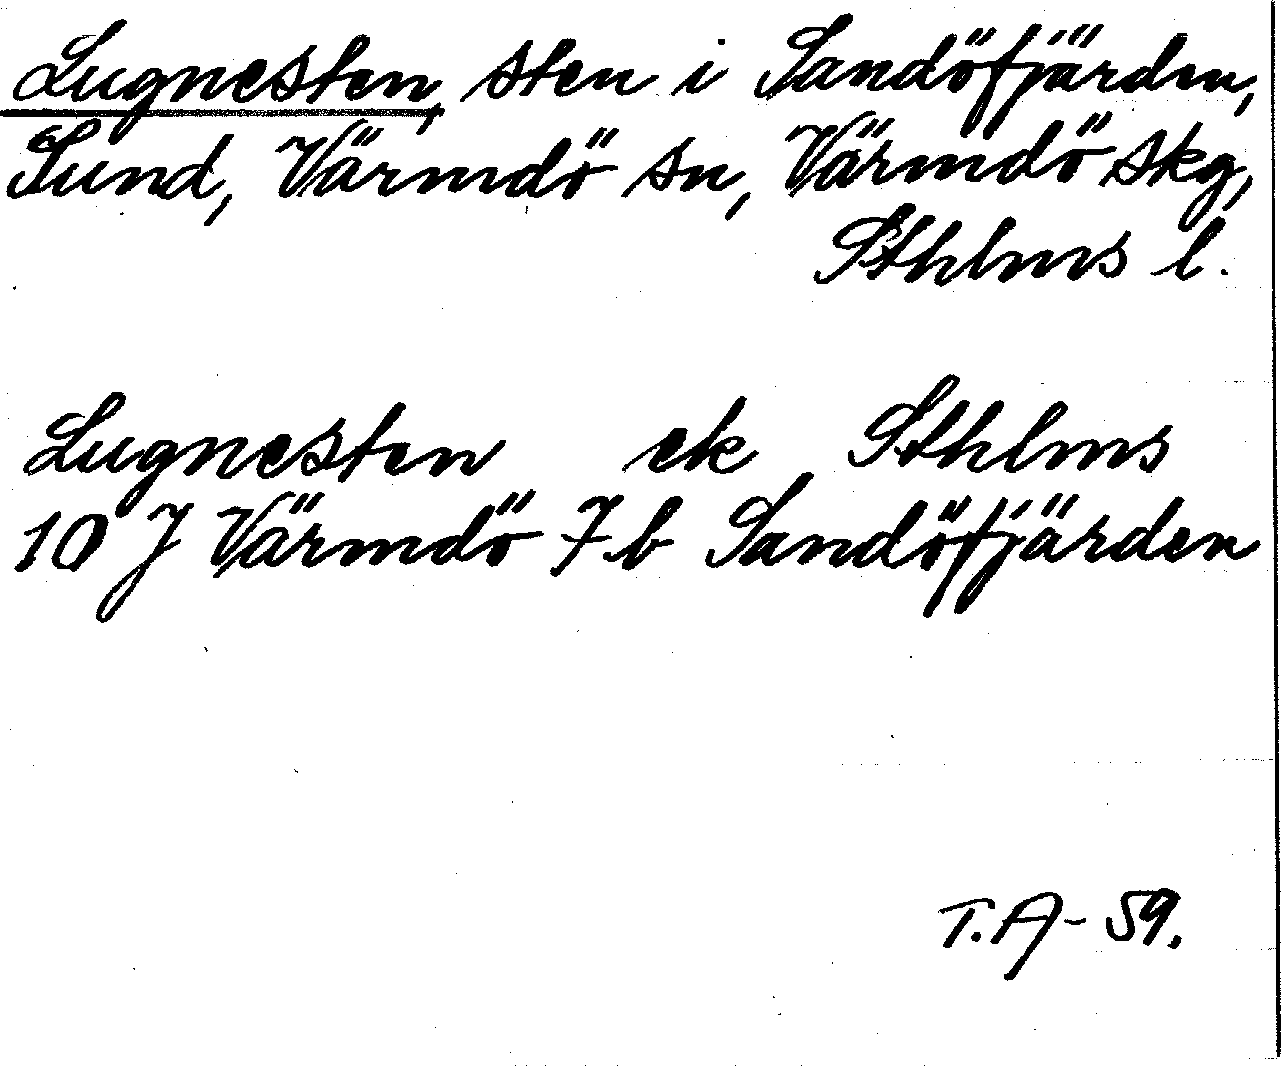 Lugnesten, sten i Sandöfjärden,
Sund, Värmdö sn, Värmdö skg,
Sthlms l.
Lugnesten ek Sthlms
10 J Värmdö 7b Sandöfjärden
T.A - 59.